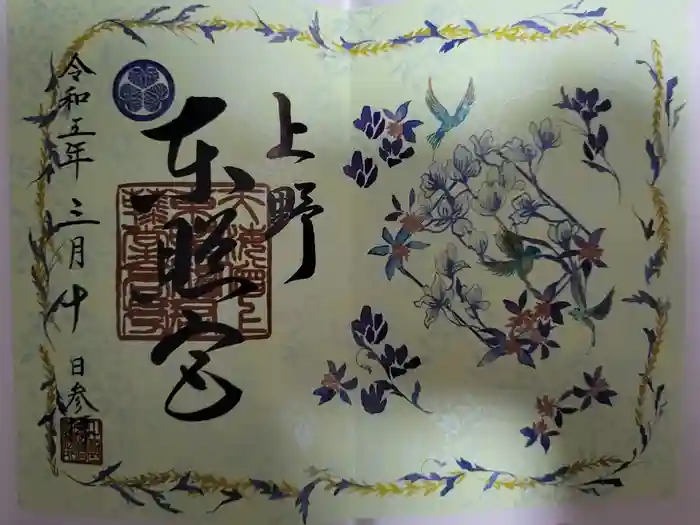 上野
東照宮
令和五年 三月十日参拝